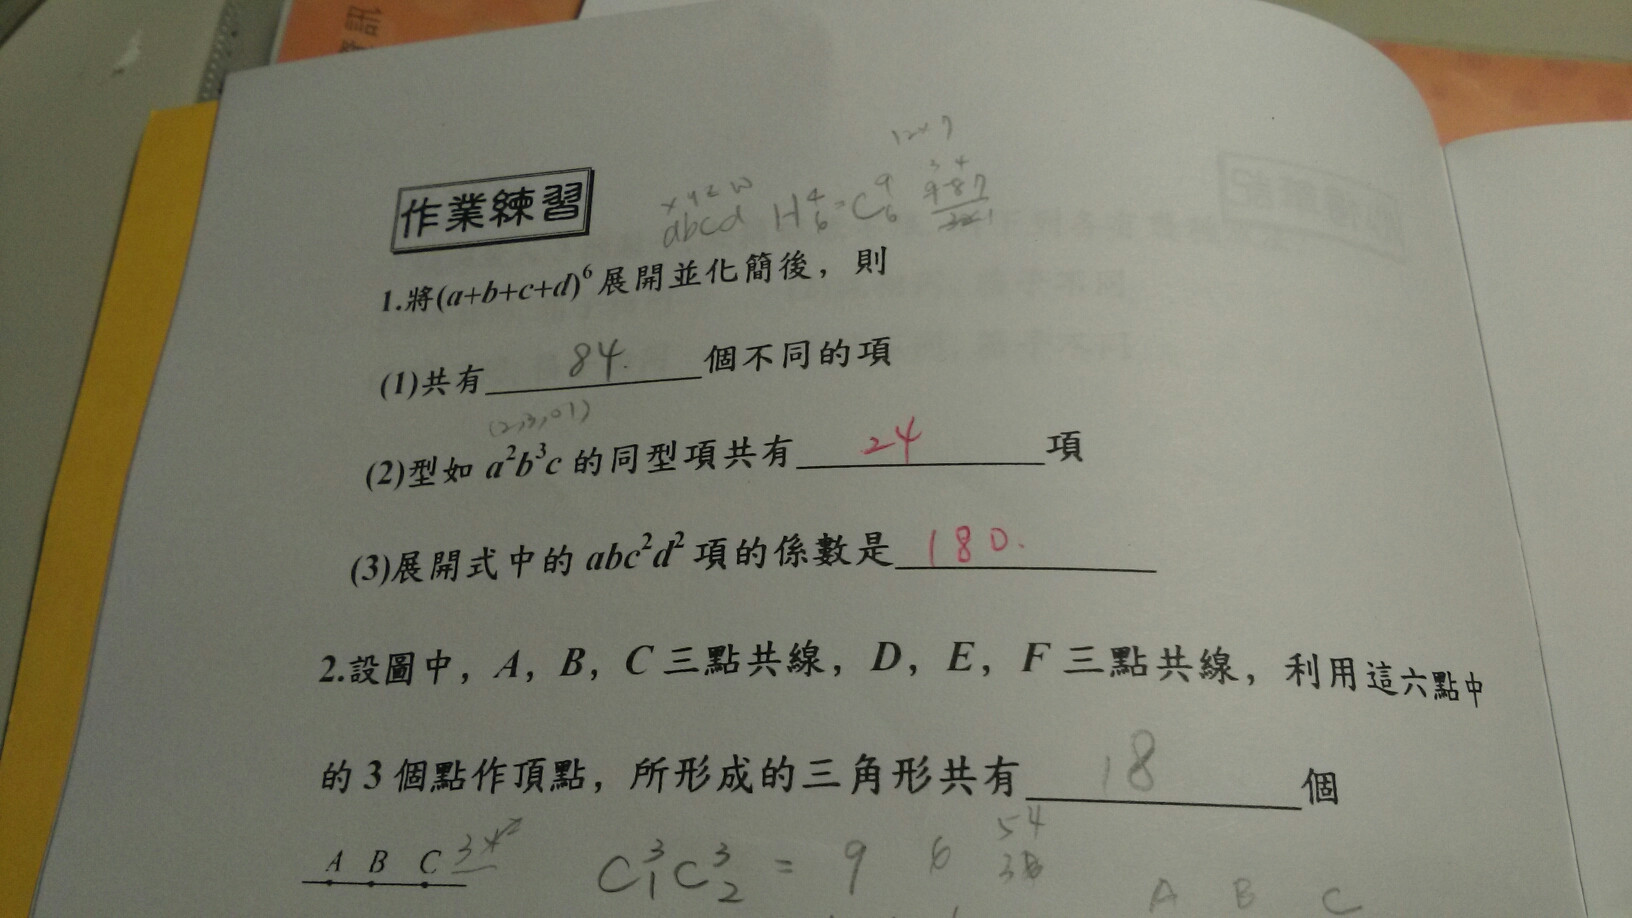 12×7
3 4
x y z w
abcd H⁴₆=C⁹₆ 9·8·7
作業練習
1.將(a+b+c+d)⁶展開並化簡後，則
(1)共有 84. 個不同的項
(2,3,01)
(2)型如 a²b³c 的同型項共有 24 項
(3)展開式中的 abc²d² 項的係數是 180.
2.設圖中，A，B，C 三點共線，D，E，F 三點共線，利用這六點中
的 3 個點作頂點，所形成的三角形共有 18 個
54
A B C
C³₁C³₂ = 9 6
A B C